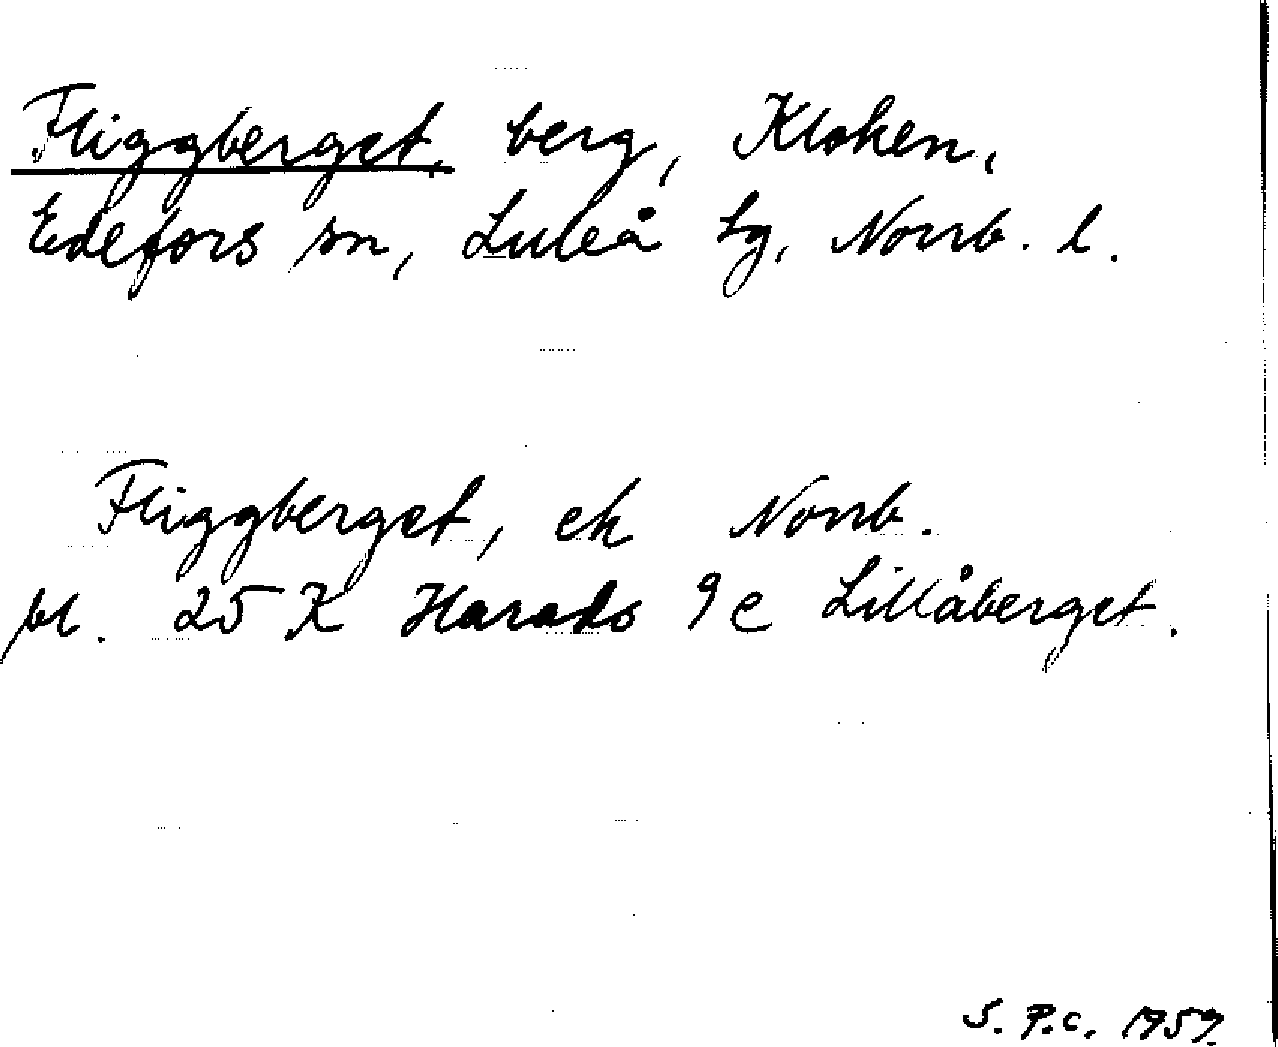 Fliggberget, berg, Kloken,
Edefors sn, Luleå tg, Norrb. l.
Fliggberget, ek Norrb.
bl. 25 K Harads 9 e Lillåberget.
S. P.C. 1959.